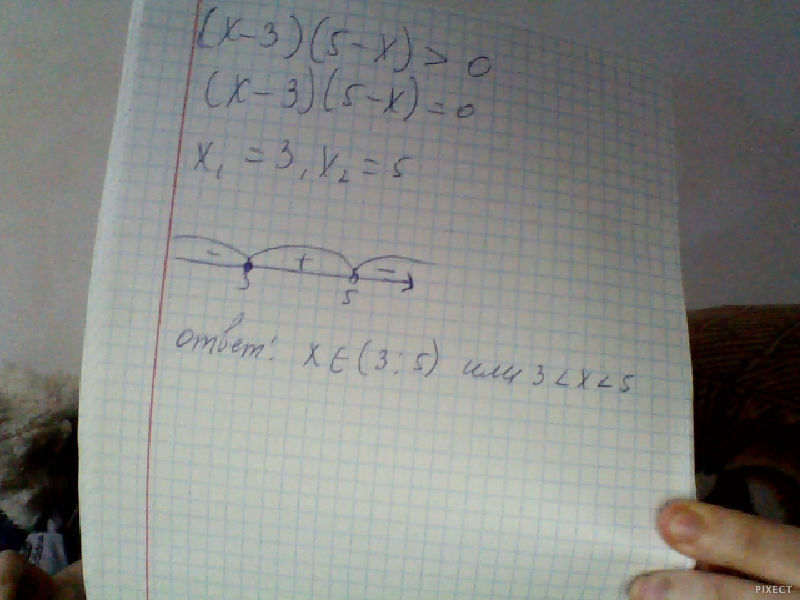 (x-3)(5-x) > 0
(x-3)(5-x) = 0
x₁ = 3, x₂ = 5
- + -
3 5
ответ: x ∈ (3; 5) или 3 < x < 5
PIXECT